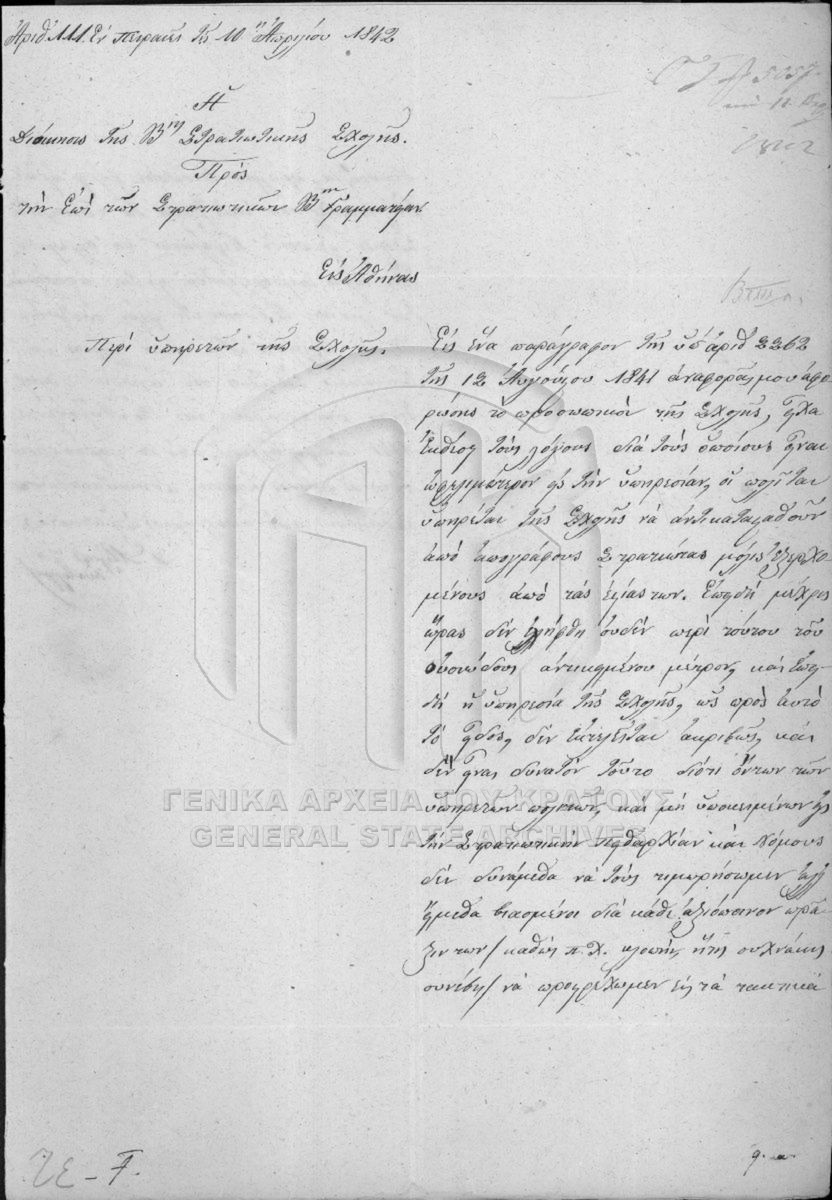 Ἀριθ 111. Ἐν Πειραιεῖ τῇ 10 Ἀπριλίου 1842
Ἡ
Διοίκησις τῆς Βης Στρατιωτικῆς Σχολῆς.
Πρὸς
τὴν Ἐπὶ τῶν Στρατιωτικῶν Βην Γραμματείαν
Εἰς Ἀθήνας
Περὶ ὑπηρετῶν τῆς Σχολῆς.
Εἰς ἕνα παράγραφον τῆς ὑπ' ἀριθ 2262
τῆς 12 Αὐγούστου 1841 ἀναφορᾶς μου ἀφο
ρώσης τὸ προσωπικὸν τῆς Σχολῆς, εἶχα
ἐκθέσει τοὺς λόγους διὰ τοὺς ὁποίους εἶναι
ὠφελιμώτερον εἰς τὴν ὑπηρεσίαν, οἱ πολῖται
ὑπηρέται τῆς Σχολῆς νὰ ἀντικατασταθοῦν
ἀπὸ ἀπογράφους Στρατιώτας μόλις ἐξερχο
μένους ἀπὸ τὰς ἑστίας των. Ἐπειδὴ μέχρις
ὥρας δὲν ἐλήφθη οὐδὲν περὶ τούτου τοῦ
οὐσιώδους ἀντικειμένου μέτρον, καὶ ἐπει
δὴ ἡ ὑπηρεσία τῆς Σχολῆς, ὡς πρὸς αὐτὸ
τὸ εἶδος, δὲν ἐκτελεῖται ἀκριβῶς, καὶ
δὲν εἶναι δυνατὸν τοῦτο διότι ὄντων τῶν
ὑπηρετῶν πολιτῶν, καὶ μὴ ὑποκειμένων εἰς
τὴν Στρατιωτικὴν Πειθαρχίαν καὶ Νόμους
δὲν δυνάμεθα νὰ τοὺς τιμωρήσωμεν ἀλλ'
εἴμεθα βιασμένοι διὰ κάθε ἀξιόποινον πρᾶ
ξιν των / καθὼς π.χ. κλοπὴν, ἥτις συχνάκις
συνέβη / νὰ προστρέχωμεν εἰς τὰ τακτικὰ
ΓΕΝΙΚΑ ΑΡΧΕΙΑ ΤΟΥ ΚΡΑΤΟΥΣ
GENERAL STATE ARCHIVES